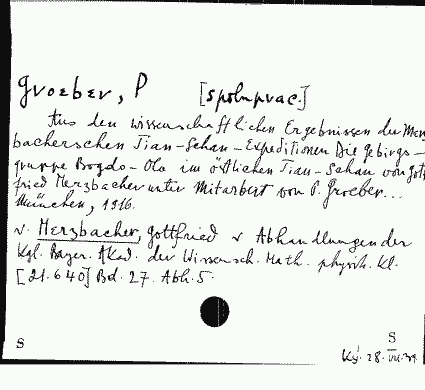 Groeber, P [spoluprac.]
Aus den wissenschaftlichen Ergebnissen der Merz
bacherschen Tian-Schan-Expeditionen Die Gebirgs-
gruppe Bogdo-Ola im östlichen Tian-Schan von Gott
fried Merzbacher unter Mitarbeit von P. Groeber...
München, 1916.
v. Merzbacher, Gottfried v Abhandlungen der
Kgl. Bayer. Akad. der Wissensch. Math. physik. Kl.
[21.640] Bd. 27. Abh. 5.
S
S
Ký 28. VII. 39